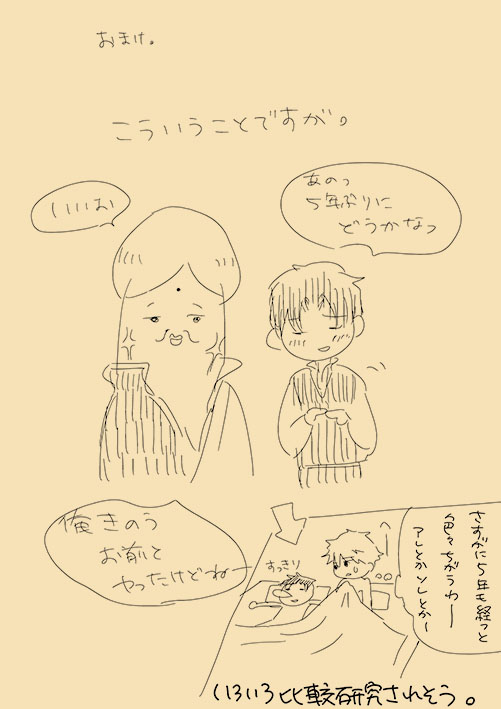 おまけ。
こういうことですが。
あのっ
5年ぶりに
どうかなっ
いいお
俺きのう
お前と
ヤったけどねー
さすがに5年も経つと
色々ちがうわー
アレとかソレとか〜
すっきり
いろいろ比較研究されそう。